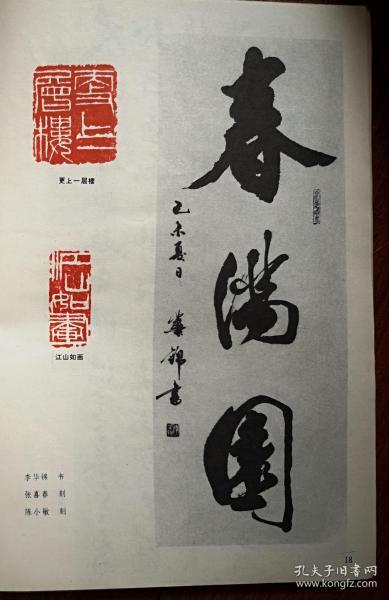 春满园
乙未夏日 华锦书
更上一层楼
更上一层楼
江山如画
江山如画
李华锦 书
张喜春 刻
陈小敏 刻
18
孔夫子旧书网